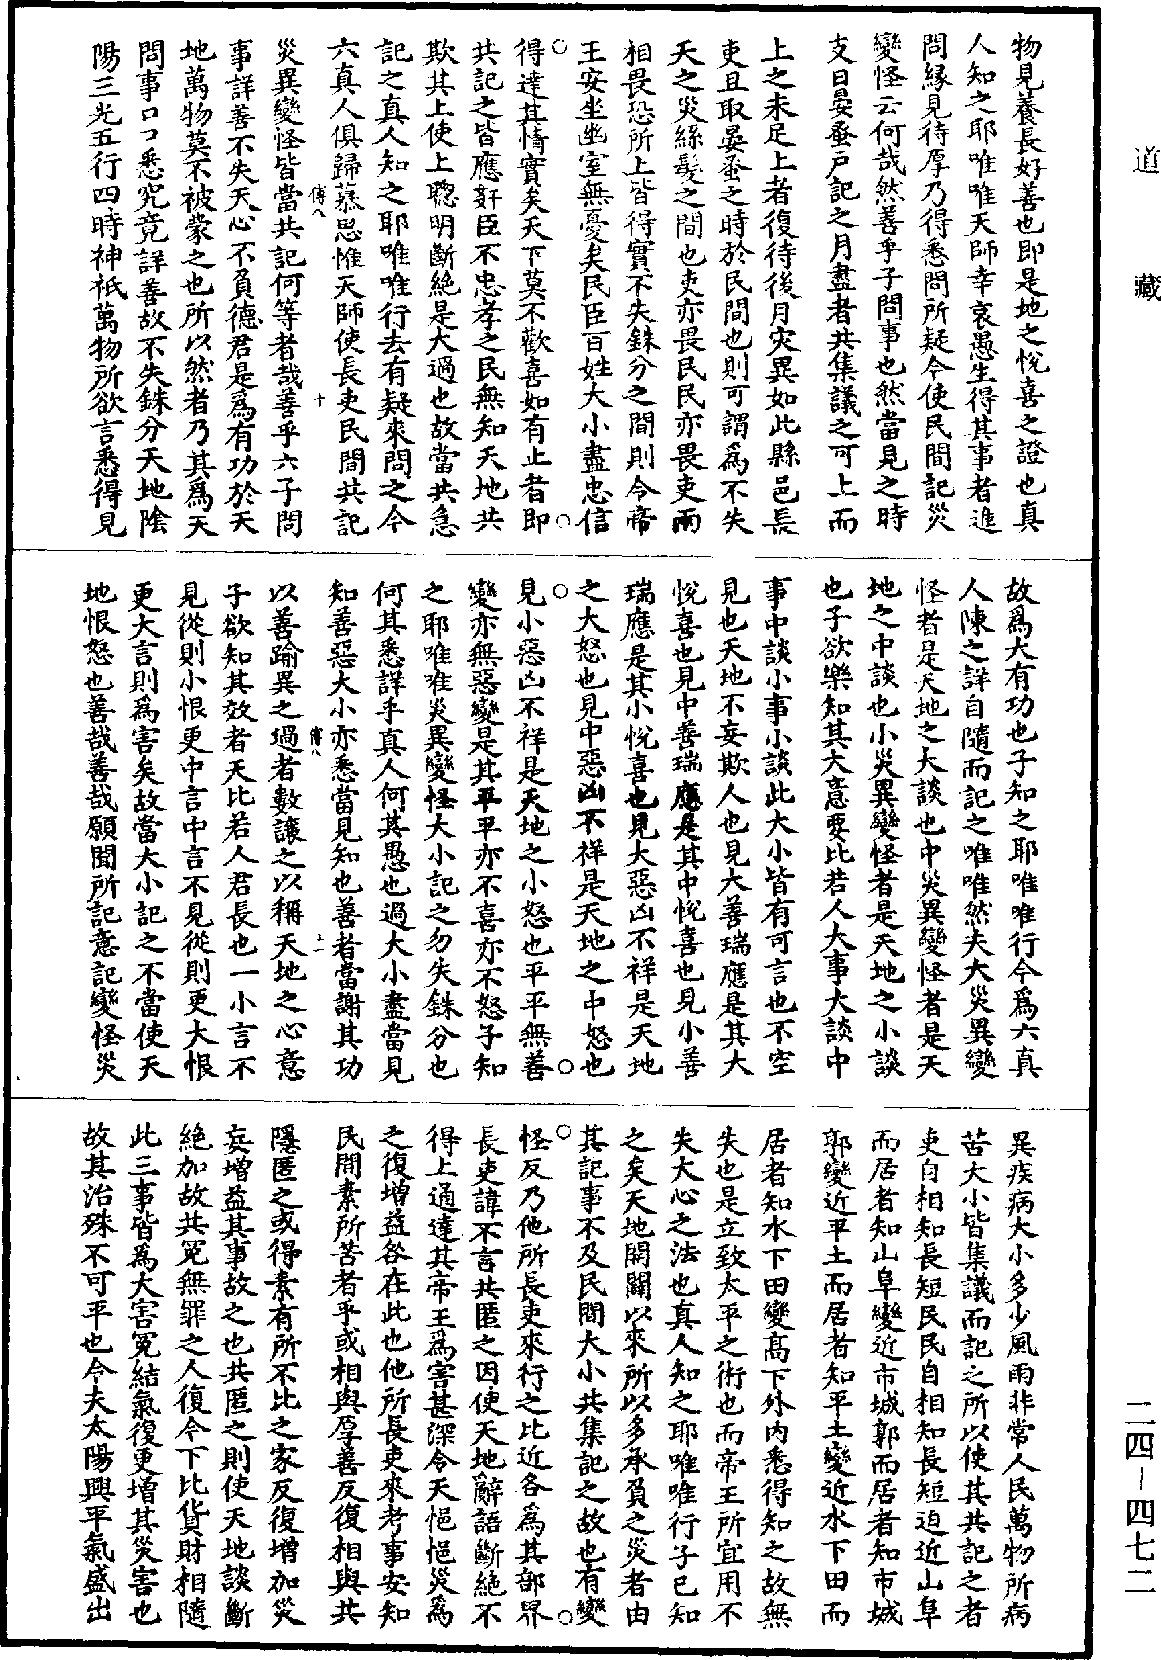 道藏
物見養長好善也即是地之悅喜之證也真
人知之耶唯唯天師幸哀愚生得其事者進
問緣見待厚乃得悉問所疑今使民間記災
變怪云何哉然善乎子問事也然當見之時
支日晏蚤戶記之月盡者共集議之可上而
上之未足上者復待後月灾異如此縣邑長
吏且取晏蚤之時於民間也則可謂為不失
天之災絲髮之間也吏亦畏民民亦畏吏兩
相畏恐所上皆得實不失銖分之間則令帝
王安坐幽室無憂矣民臣百姓大小盡忠信
得達其情實矣天下莫不歡喜如有止者即
共記之皆應奸臣不忠孝之民無知天地共
欺其上使上聰明斷絕是大過也故當共急
記之真人知之耶唯唯行去有疑來問之今
六真人俱歸慕思惟天師使長吏民間共記
傅八
十
災異變怪皆當共記何等者哉善乎六子問
事詳善不失天心不負德君是為有功於天
地萬物莫不被蒙之也所以然者乃其為天
問事口口悉究竟詳善故不失銖分天地陰
陽三光五行四時神祇萬物所欲言悉得見
故為大有功也子知之耶唯唯行今為六真
人陳之詳自隨而記之唯唯然夫大災異變
怪者是天地之大談也中災異變怪者是天
地之中談也小災異變怪者是天地之小談
也子欲樂知其大意要比若人大事大談中
事中談小事小談此大小皆有可言也不空
見也天地不妄欺人也見大善瑞應是其大
悅喜也見中善瑞應是其中悅喜也見小善
瑞應是其小悅喜也見大惡凶不祥是天地
之大怒也見中惡凶不祥是天地之中怒也
見小惡凶不祥是天地之小怒也平平無善
變亦無惡變是其平平亦不喜亦不怒子知
之耶唯唯災異變怪大小記之勿失銖分也
何其悉詳乎真人何其愚也過大小盡當見
知善惡大小亦悉當見知也善者當謝其功
傅八
十一
以善踰異之過者數讓之以稱天地之心意
子欲知其效者天比若人君長也一小言不
見從則小恨更中言中言不見從則更大恨
更大言則為害矣故當大小記之不當使天
地恨怒也善哉善哉願聞所記意記變怪災
異疾病大小多少風雨非常人民萬物所病
苦大小皆集議而記之所以使其共記之者
吏自相知長短民民自相知長短迫近山阜
而居者知山阜變近市城郭而居者知市城
郭變近平土而居者知平土變近水下田而
居者知水下田變高下外內悉得知之故無
失也是立致太平之術也而帝王所宜用不
失大心之法也真人知之耶唯唯行子已知
之矣天地開闢以來所以多承負之災者由
其記事不及民間大小共集記之故也有變
怪反乃他所長吏來行之比近各為其部界
長吏諱不言共匿之因使天地辭語斷絕不
得上通達其帝王為害甚深令天悒悒災為
之復增益咎在此也他所長吏來考事安知
民間素所苦者乎或相與厚善反復相與共
隱匿之或得素有所不比之家反復增加災
妄增益其事故之也共匿之則使天地談斷
絕加故共冤無罪之人復令下比貨財相隨
此三事皆為大害冤結氣復更增其災害也
故其治殊不可平也今夫太陽興平氣盛出
二四－四七二